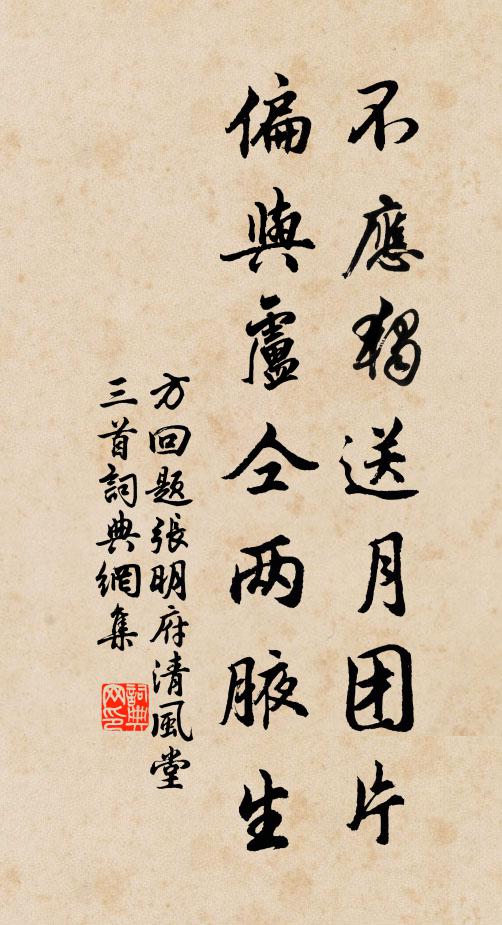 不應獨送月团片
偏與盧仝两腋生
方回题張明府清風堂
三首詞典網集
詞典网印